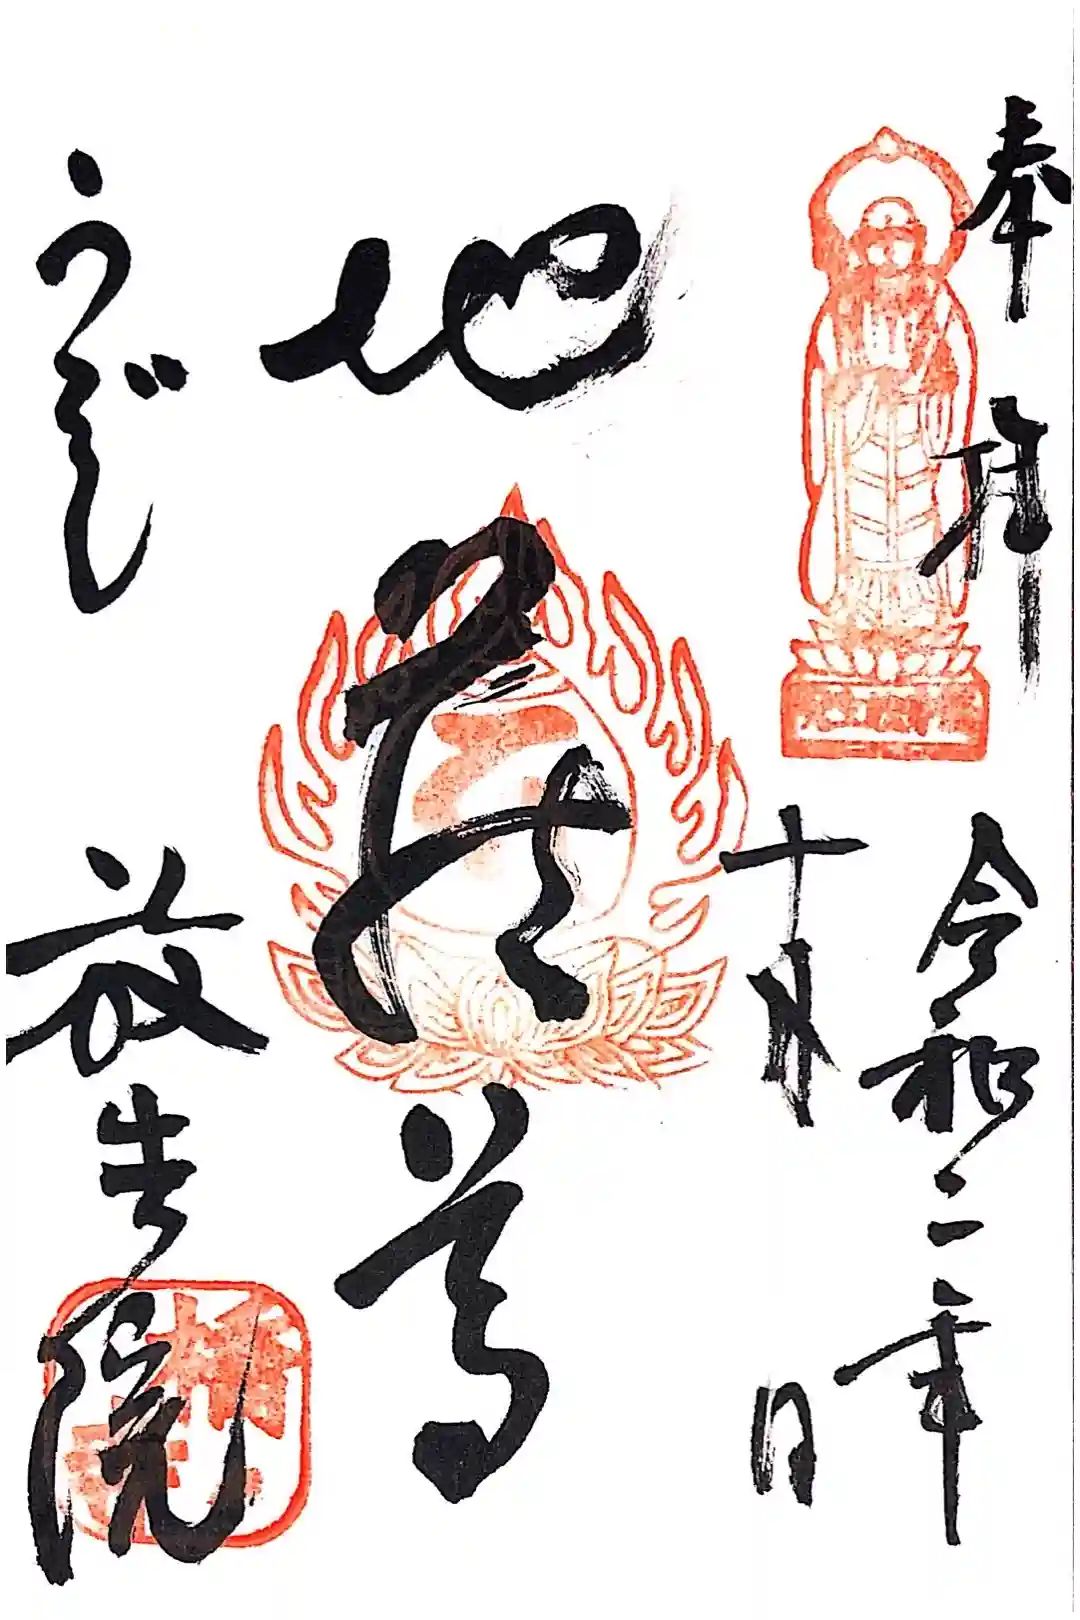 奉拝
令和二年
十月 日
地蔵尊
うぢはし
放生院
橋寺